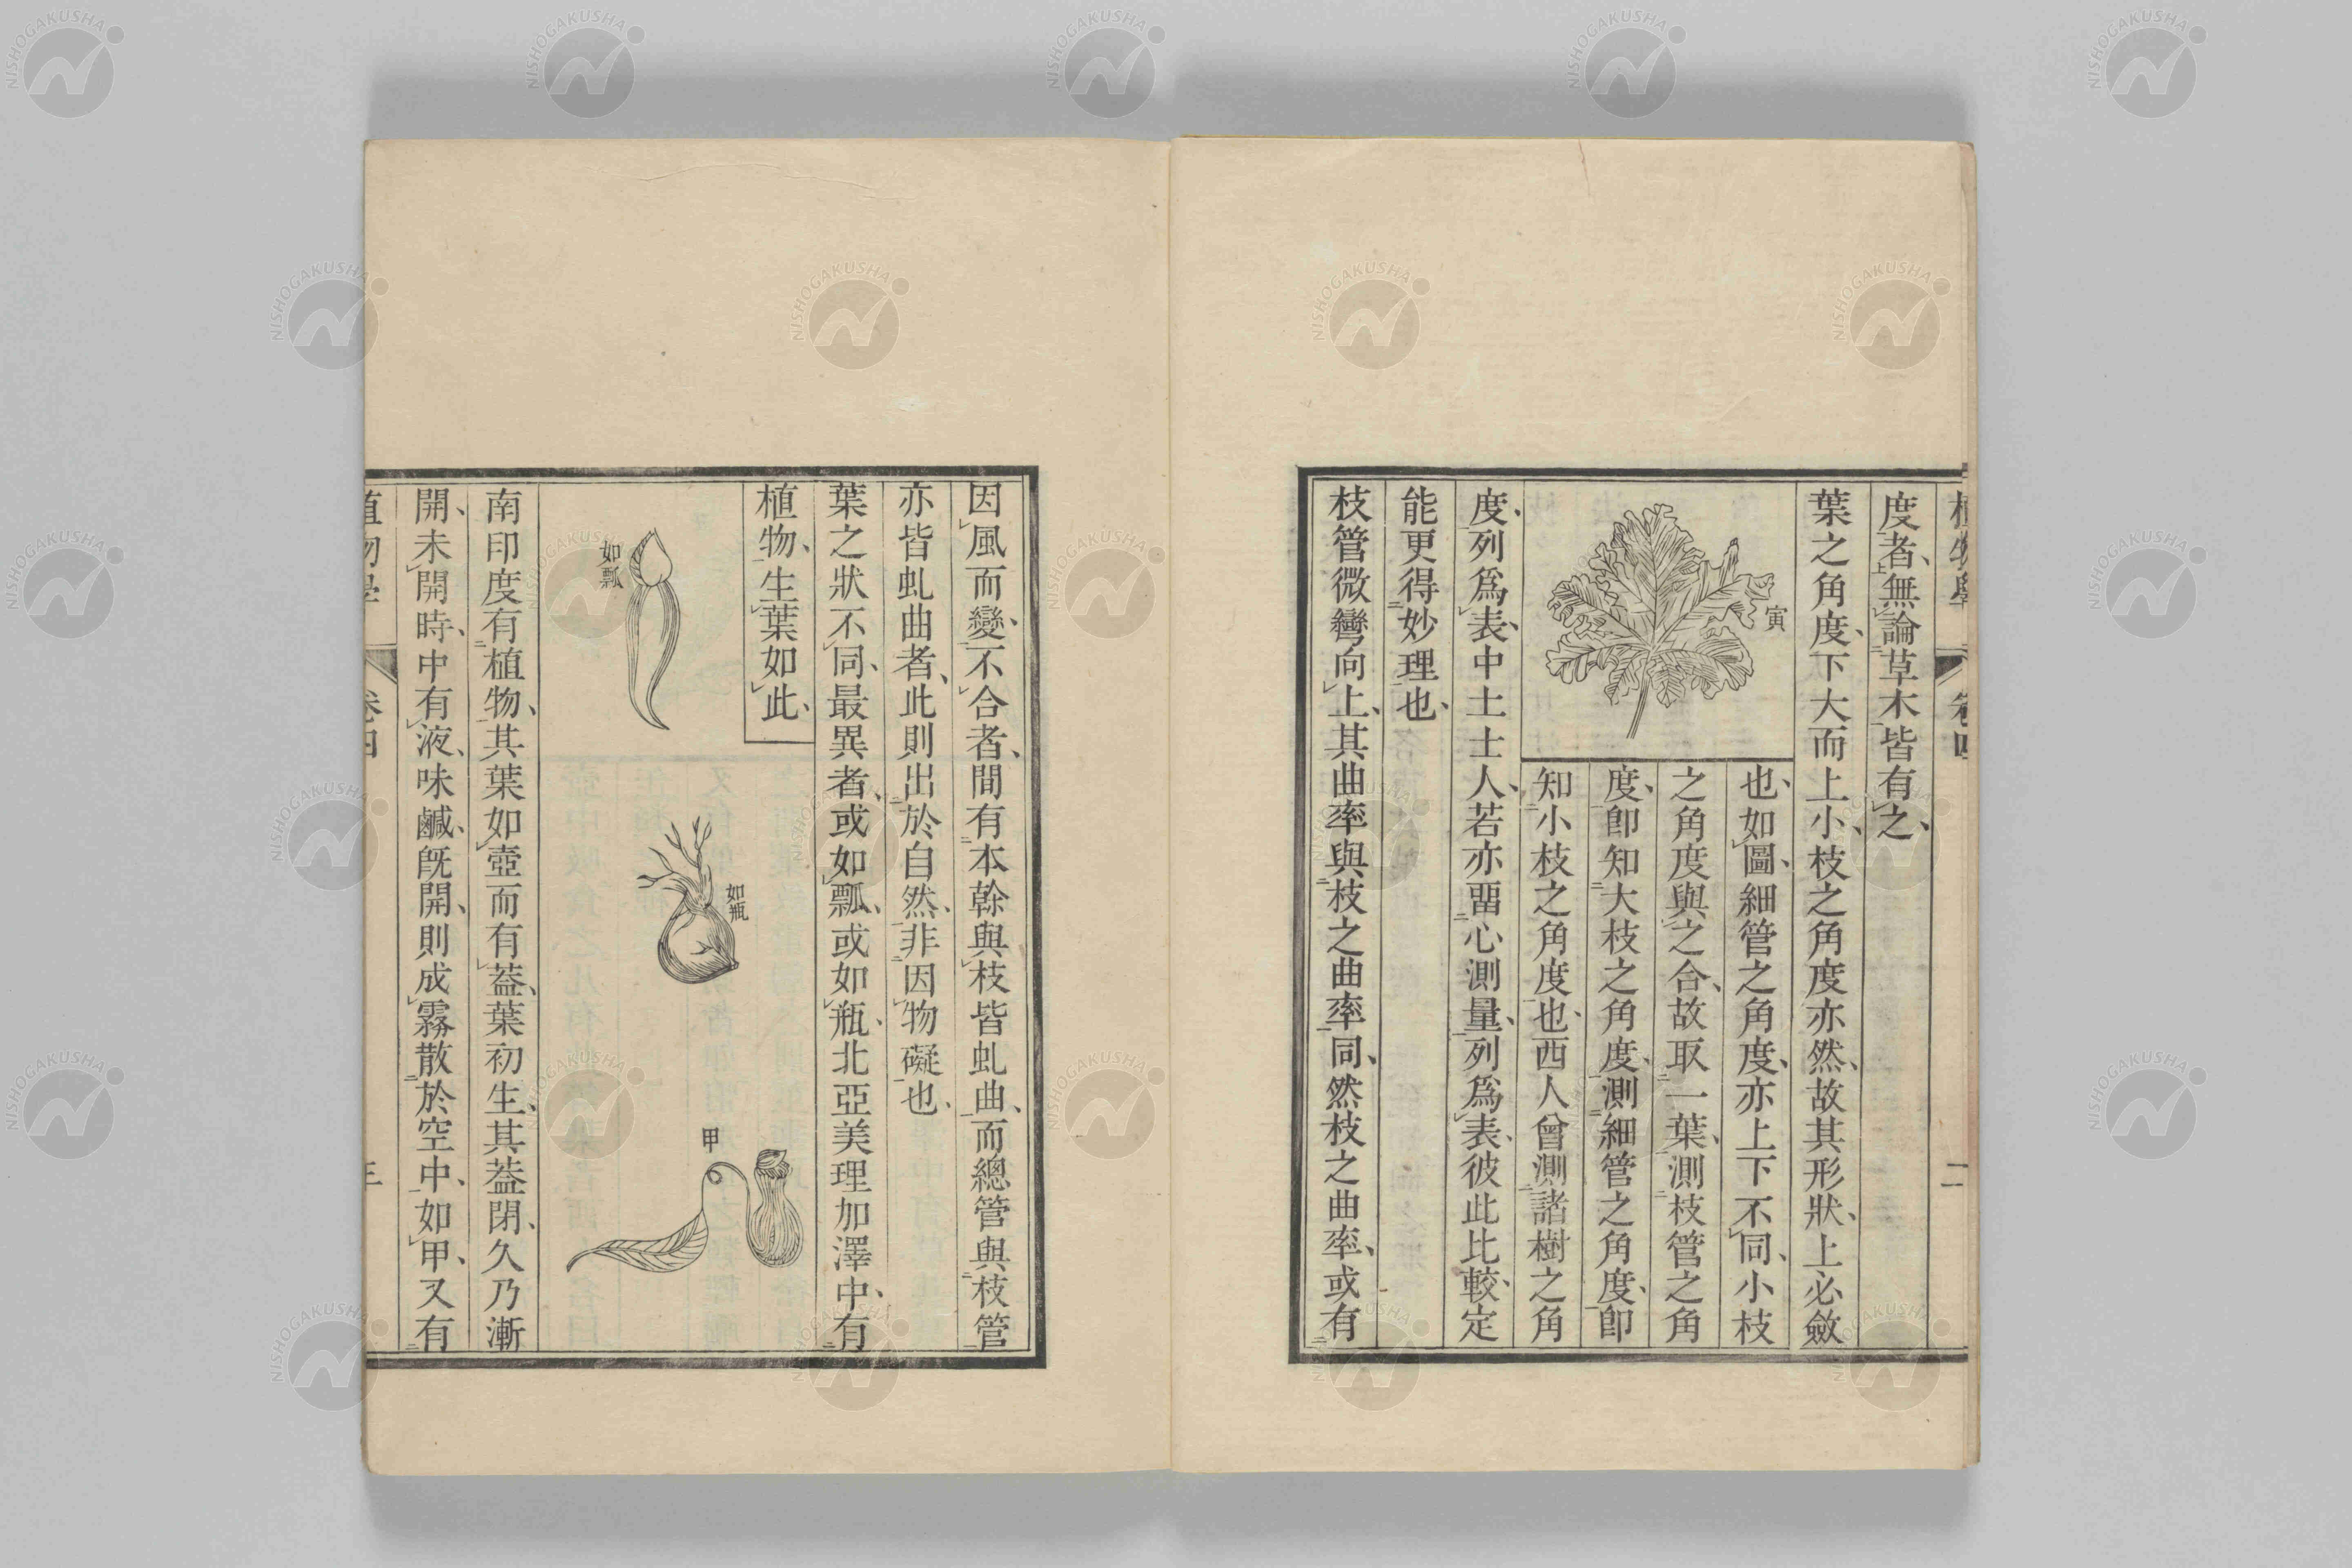 植物學 卷四 二
度者、無論草木皆有之、
葉之角度、下大而上小、枝之角度亦然、故其形狀、上必斂
寅
也、如圖、細管之角度、亦上下不同、小枝
之角度與之合、故取一葉、測枝管之角
度、卽知大枝之角度、測細管之角度、卽
知小枝之角度也、西人曾測諸樹之角
度、列爲表、中土士人、若亦畱心測量、列爲表、彼此比較、定
能更得妙理也、
枝管微彎向上、其曲率與枝之曲率同、然枝之曲率、或有
因風而變、不合者、間有本幹與枝皆虬曲、而總管與枝管
亦皆虬曲者、此則出於自然、非因物礙也、
葉之狀不同、最異者、或如瓢、或如瓶、北亞美理加澤中、有
植物、生葉如此、
如瓢
如瓶
甲
南印度有植物、其葉如壺而有葢、葉初生、其葢閉、久乃漸
開、未開時、中有液、味鹹、旣開、則成霧散於空中、如甲、又有
植物學 卷四 三
NISHOGAKUSHA